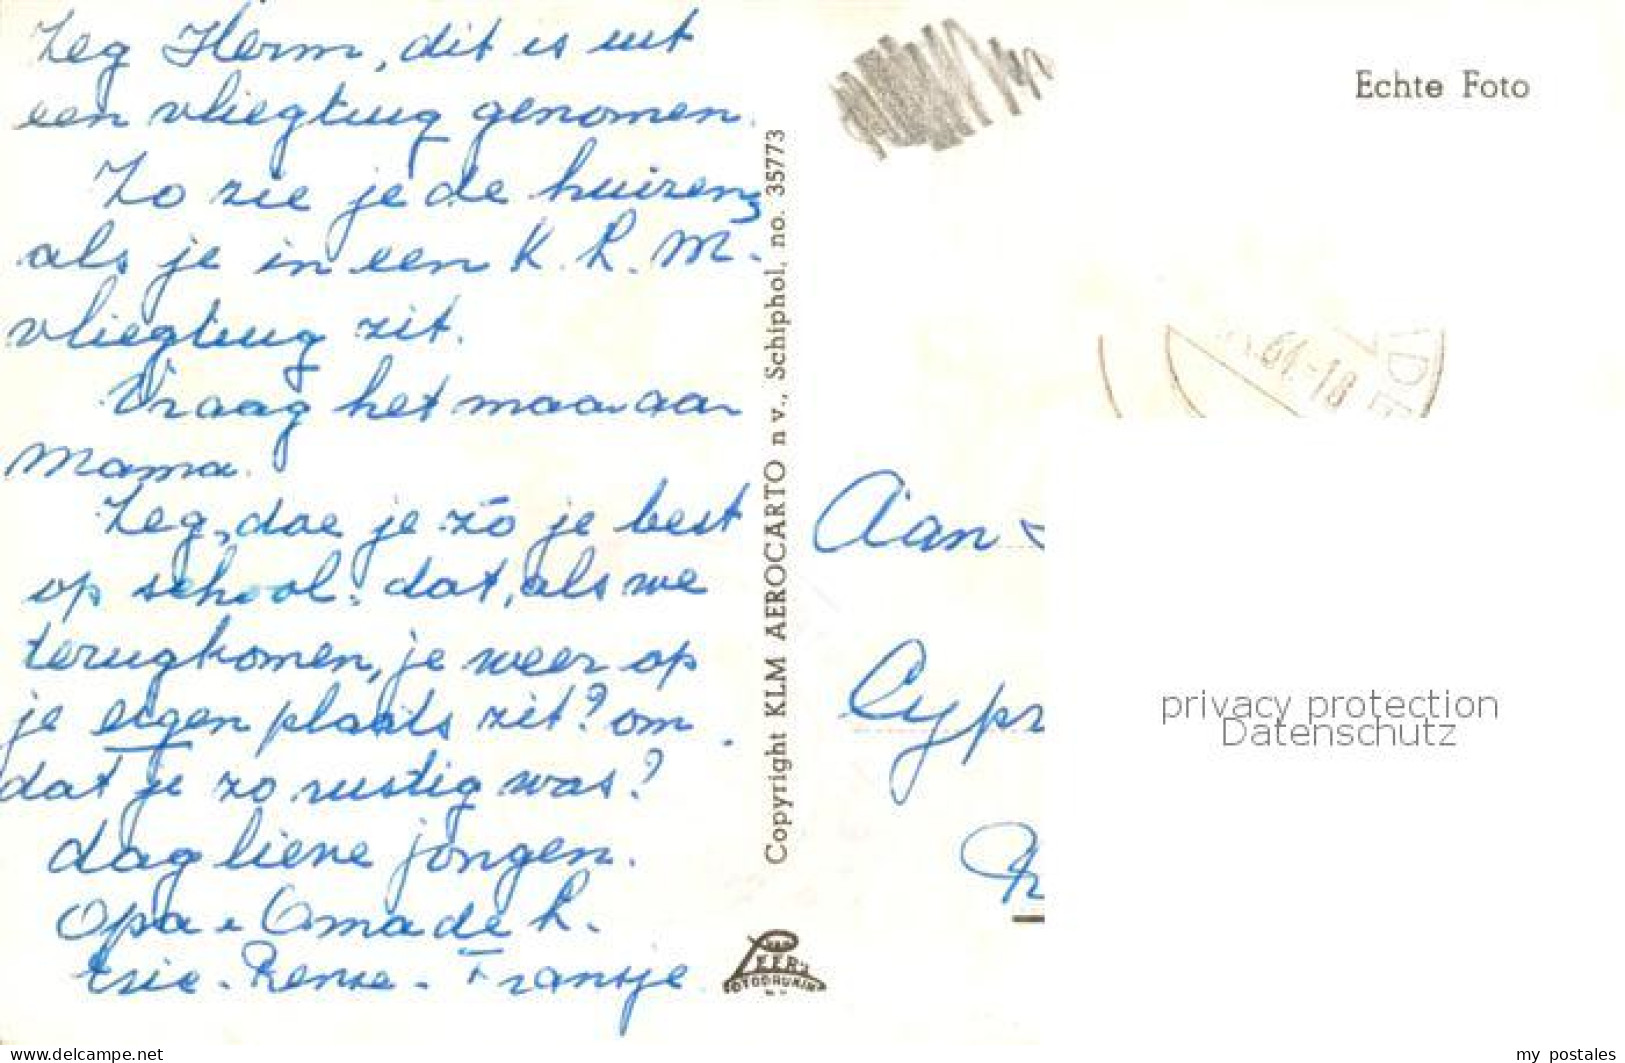 Zeg Herm, dit is uit
een vliegtuig genomen.
Zo zie je de huizen,
als je in een K.L.M.
vliegtuig zit.
Vraag het maar aan
Mama.
Zeg, doe je zó je best
op school, dat, als we
terugkomen, je weer op
je eigen plaats zit? om
dat je zo rustig was?
dag lieve jongen.
Opa + Oma de L.
Renze - Fransje
Copyright KLM AEROCARTO n v., Schiphol, no. 35773
LEER'S
FOTODRUKIN
Echte Foto
64.-18
Aan
Cypr
privacy protection
Datenschutz
www.delcampe.net
my_postales